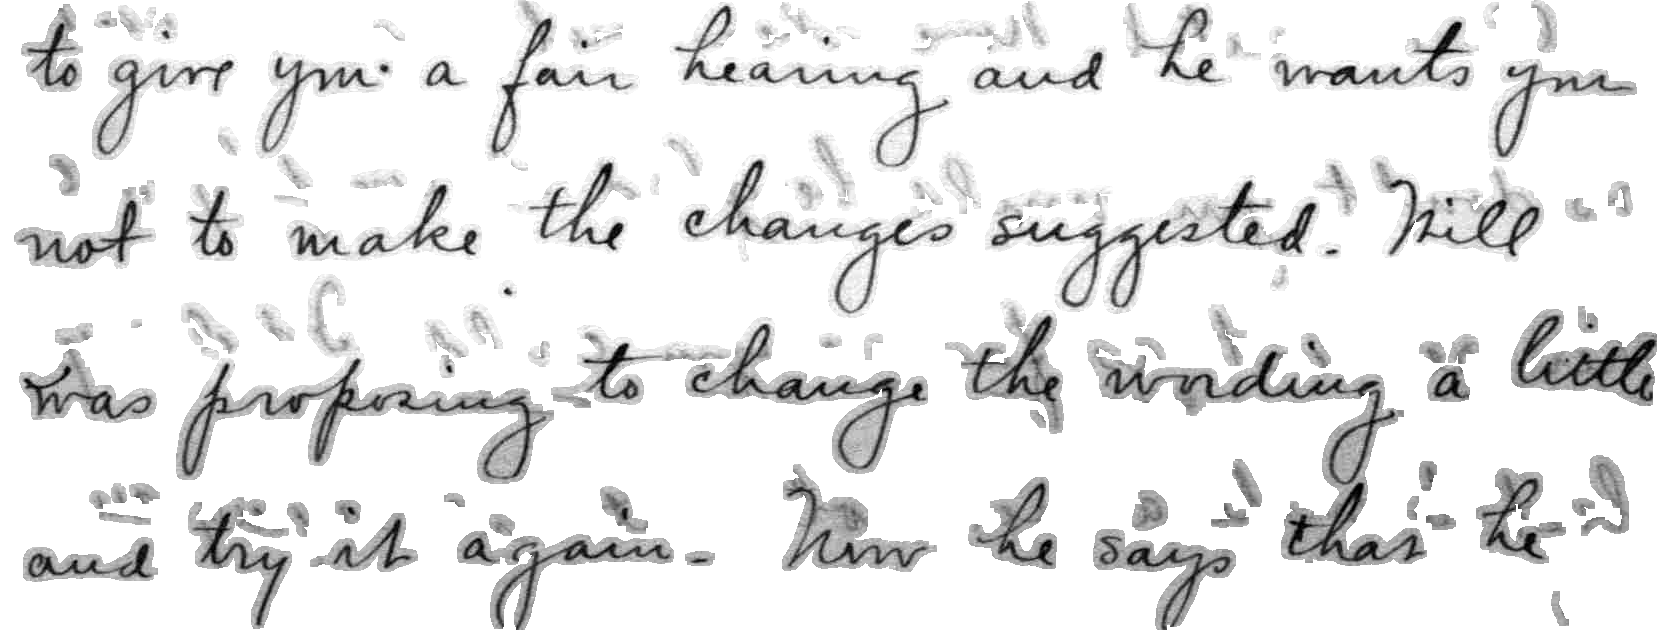 to give you a fair hearing and he wants you
not to make the changes suggested. Will
was proposing to change the wording a little
and try it again - Now he says that he